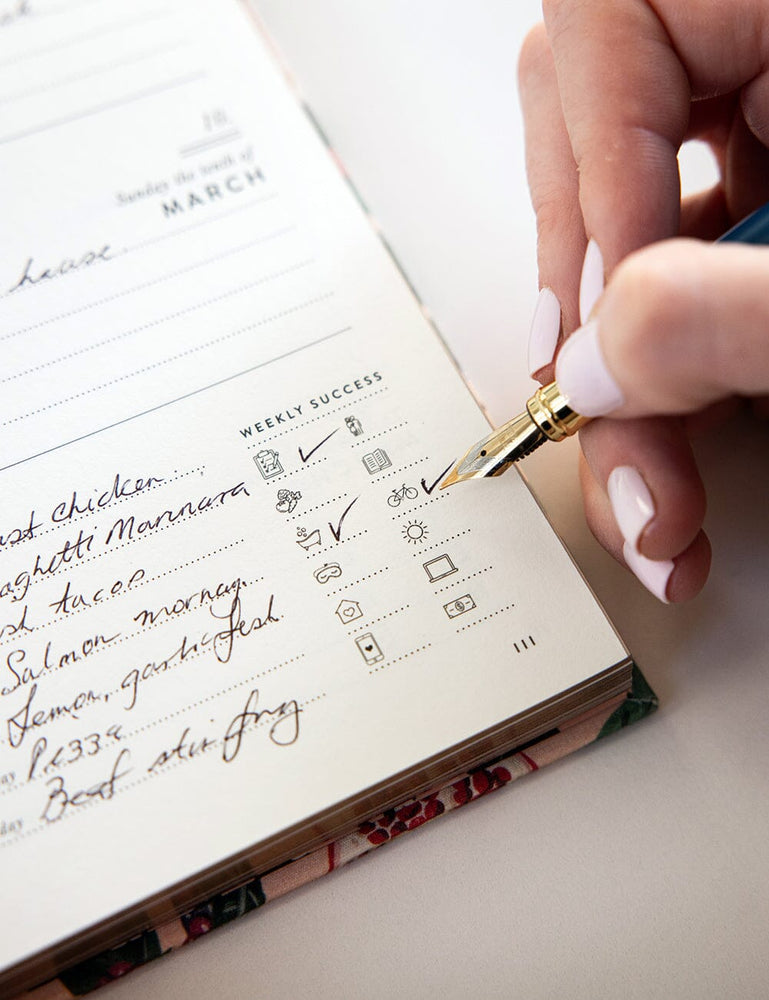 10.
Sunday the tenth of
MARCH
house
WEEKLY SUCCESS
ast Chicken
aghetti Marinara
sh tacos
Salmon mornay
Lemon, garlic fish
ay Pizza
day Beef stir fry
111